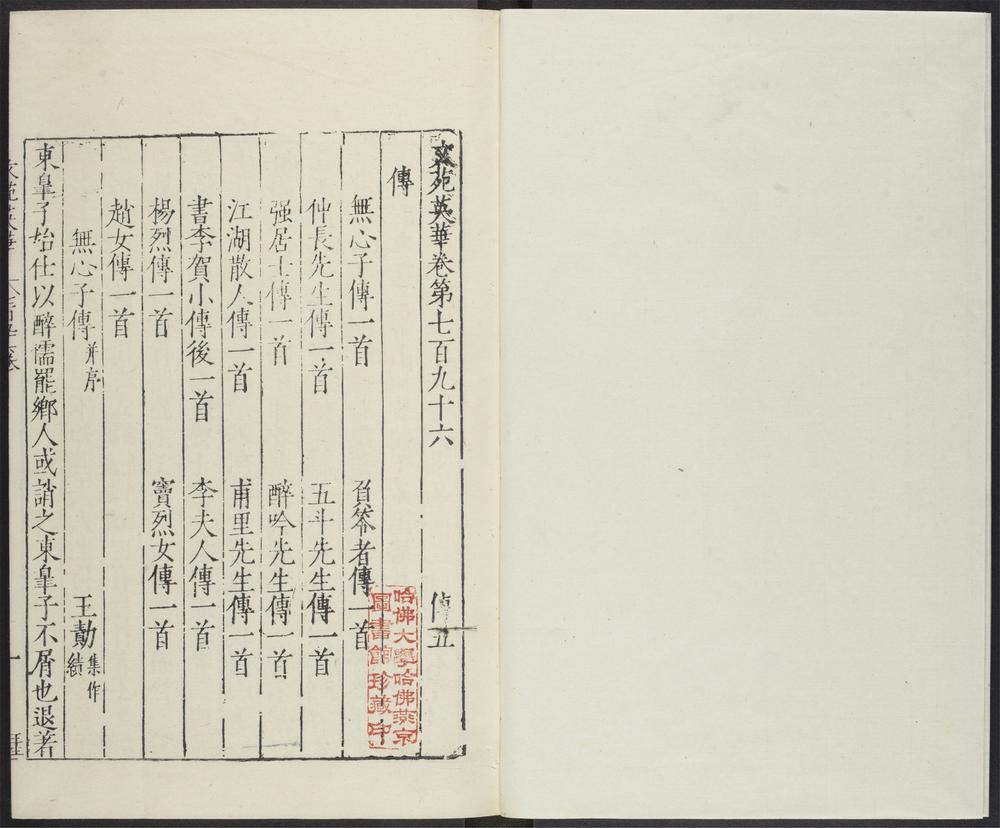 文苑英華卷第七百九十六 傳五
傳
無心子傳一首 負笭者傳一首
仲長先生傳一首 五斗先生傳一首
强居士傳一首 醉吟先生傳一首
江湖散人傳一首 甫里先生傳一首
書李賀小傳後一首 李夫人傳一首
楊烈傳一首 竇烈女傳一首
趙女傳一首
無心子傳并序 王勣集作績
東臯子始仕以醉懦罷鄉人或誚之東臯子不屑也退著
文苑英華 一
哈佛大學哈佛燕京
圖書館珍藏印